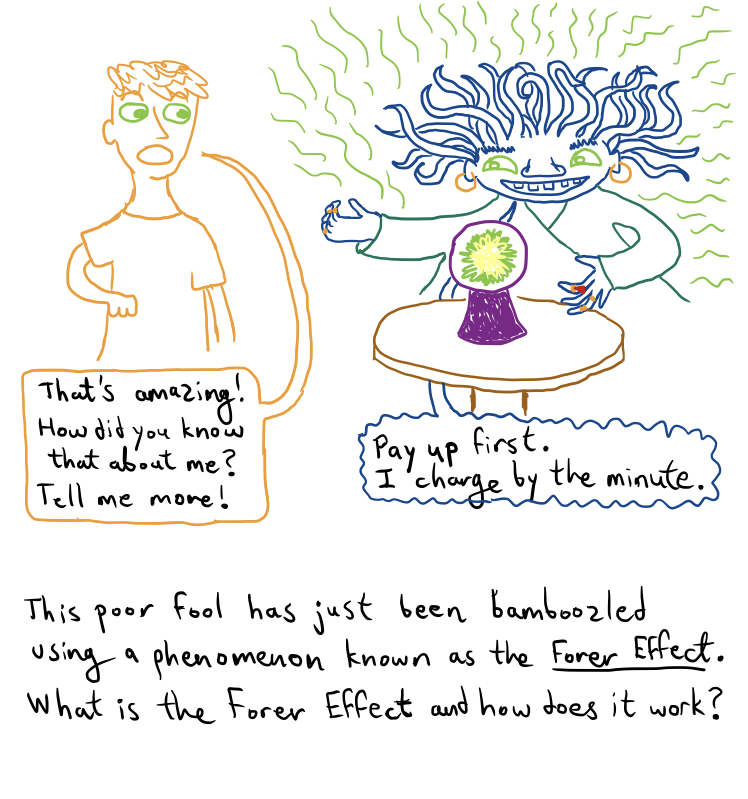 That's amazing!
How did you know
that about me?
Tell me more!
Pay up first.
I charge by the minute.
This poor fool has just been bamboozled
using a phenomenon known as the Forer Effect.
What is the Forer Effect and how does it work?